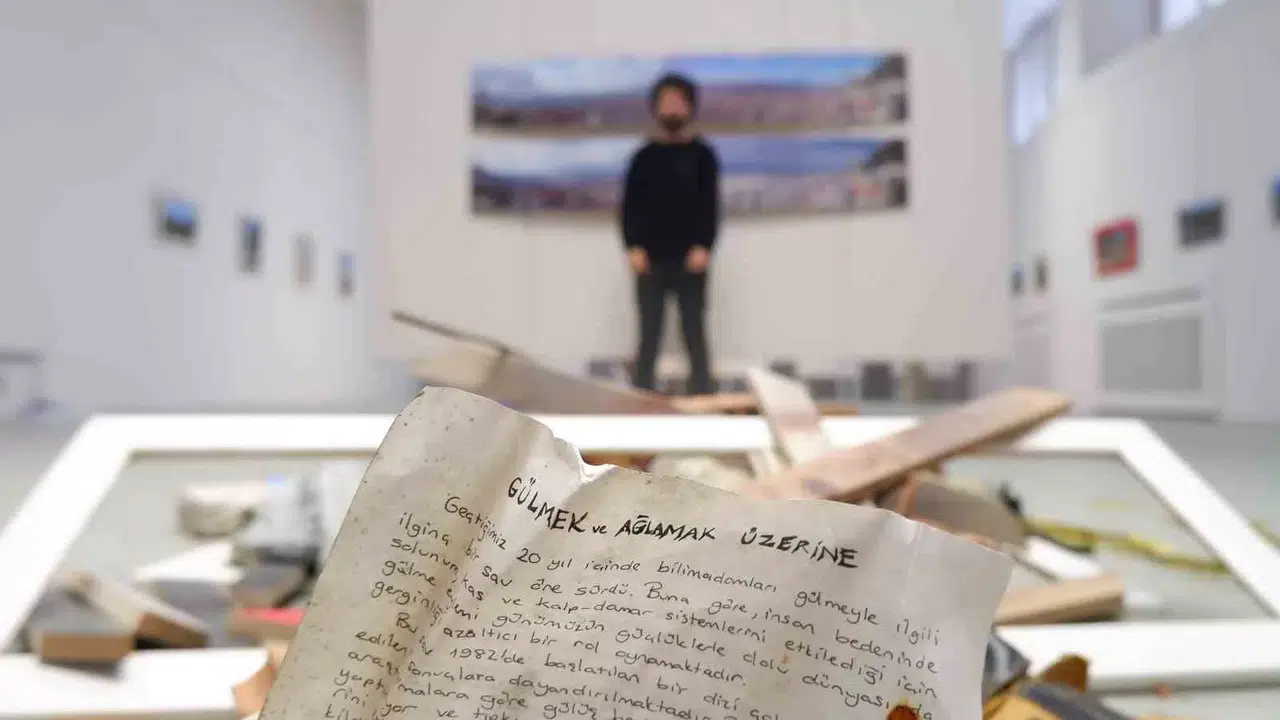 GÜLMEK ve AĞLAMAK ÜZERİNE
Geçtiğimiz 20 yıl içinde bilimadamları gülmeyle ilgili
ilginç bir sav öne sürdü. Buna göre, insan bedeninde
solunum, kas ve kalp-damar sistemlerini etkilediği için
gülme eylemi günümüzün güçlüklerle dolu dünyasında
gerginliği azaltıcı bir rol oynamaktadır.
Bu 1982'de başlatılan bir dizi
edilen dayandırılmaktadır
malara göre gülüş
yor ve